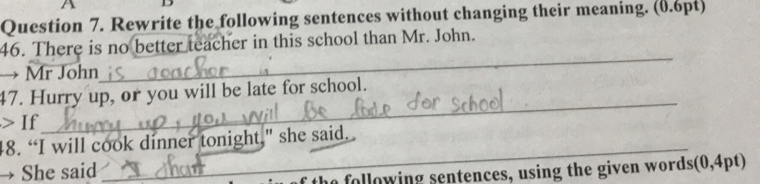 A B
Question 7. Rewrite the following sentences without changing their meaning. (0.6pt)
46. There is no better teacher in this school than Mr. John.
→ Mr John is
47. Hurry up, or you will be late for school.
-> If hurry up, you will be for school
48. “I will cook dinner tonight," she said.
→ She said
of the following sentences, using the given words(0,4pt)